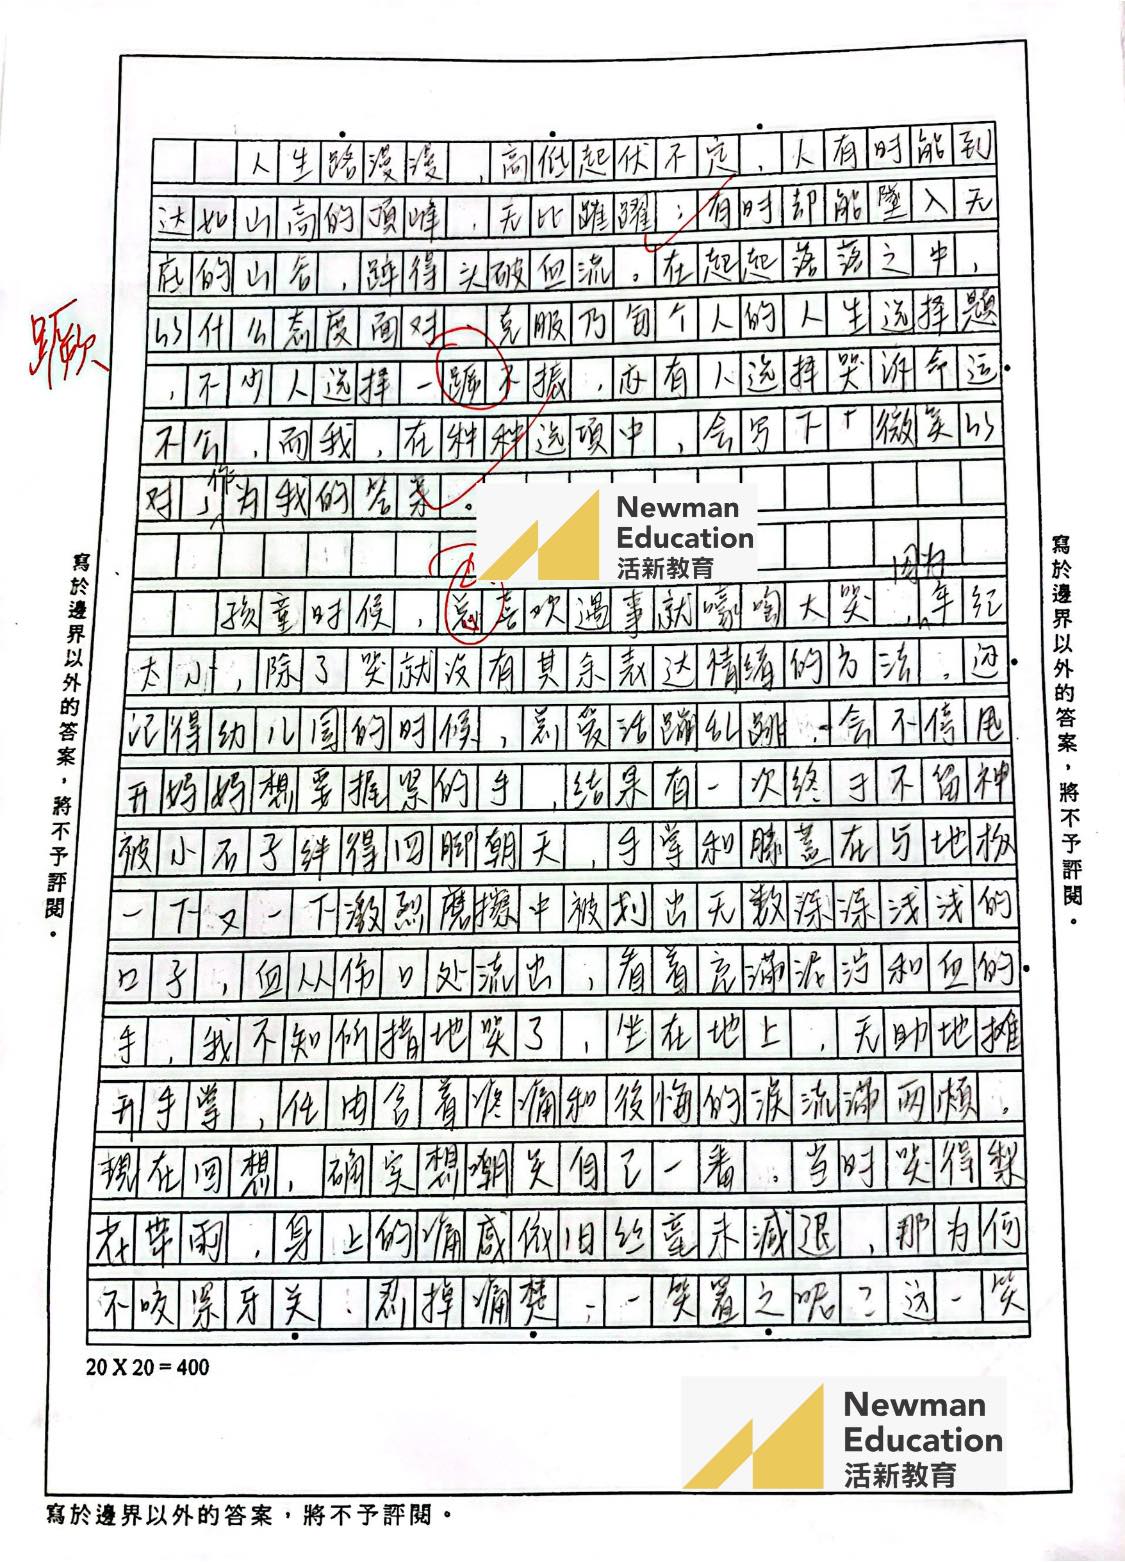 人生路漫漫，高低起伏不定，人有时能到
达如山高的顶峰，无比雀躍；有时却能墜入无
底的山谷，踫得头破血流。在起起落落之中，
以什么态度面对、克服乃每个人的人生选择题
蹶
，不少人选择一蹶不振，亦有人选择哭诉命运
不公，而我，在种种选项中，会写下「微笑以
对」作为我的答案。
Newman
Education
活新教育
孩童时候，总喜欢遇事就嚎啕大哭，因为年纪
太小，除了哭就没有其余表达情绪的方法。还
记得幼儿园的时候，总爱活蹦乱跳，会不停甩
开妈妈想要握紧的手，结果有一次终于不留神
被小石子绊得四脚朝天，手掌和膝蓋在与地板
一下又一下激烈磨擦中被划出无数深深浅浅的
口子，血从伤口处流出，看着充滿泥污和血的
手，我不知所措地哭了，坐在地上，无助地摊
开手掌，任由含着疼痛和後悔的淚流滿两頰。
現在回想，确实想嘲笑自己一番。当时哭得梨
花带雨，身上的痛感依旧丝毫未減退，那为何
不咬紧牙关、忍掉痛楚，一笑置之呢？这一笑
20 X 20 = 400
Newman
Education
活新教育
寫於邊界以外的答案，將不予評閱。
寫於邊界以外的答案，將不予評閱。
寫於邊界以外的答案，將不予評閱。